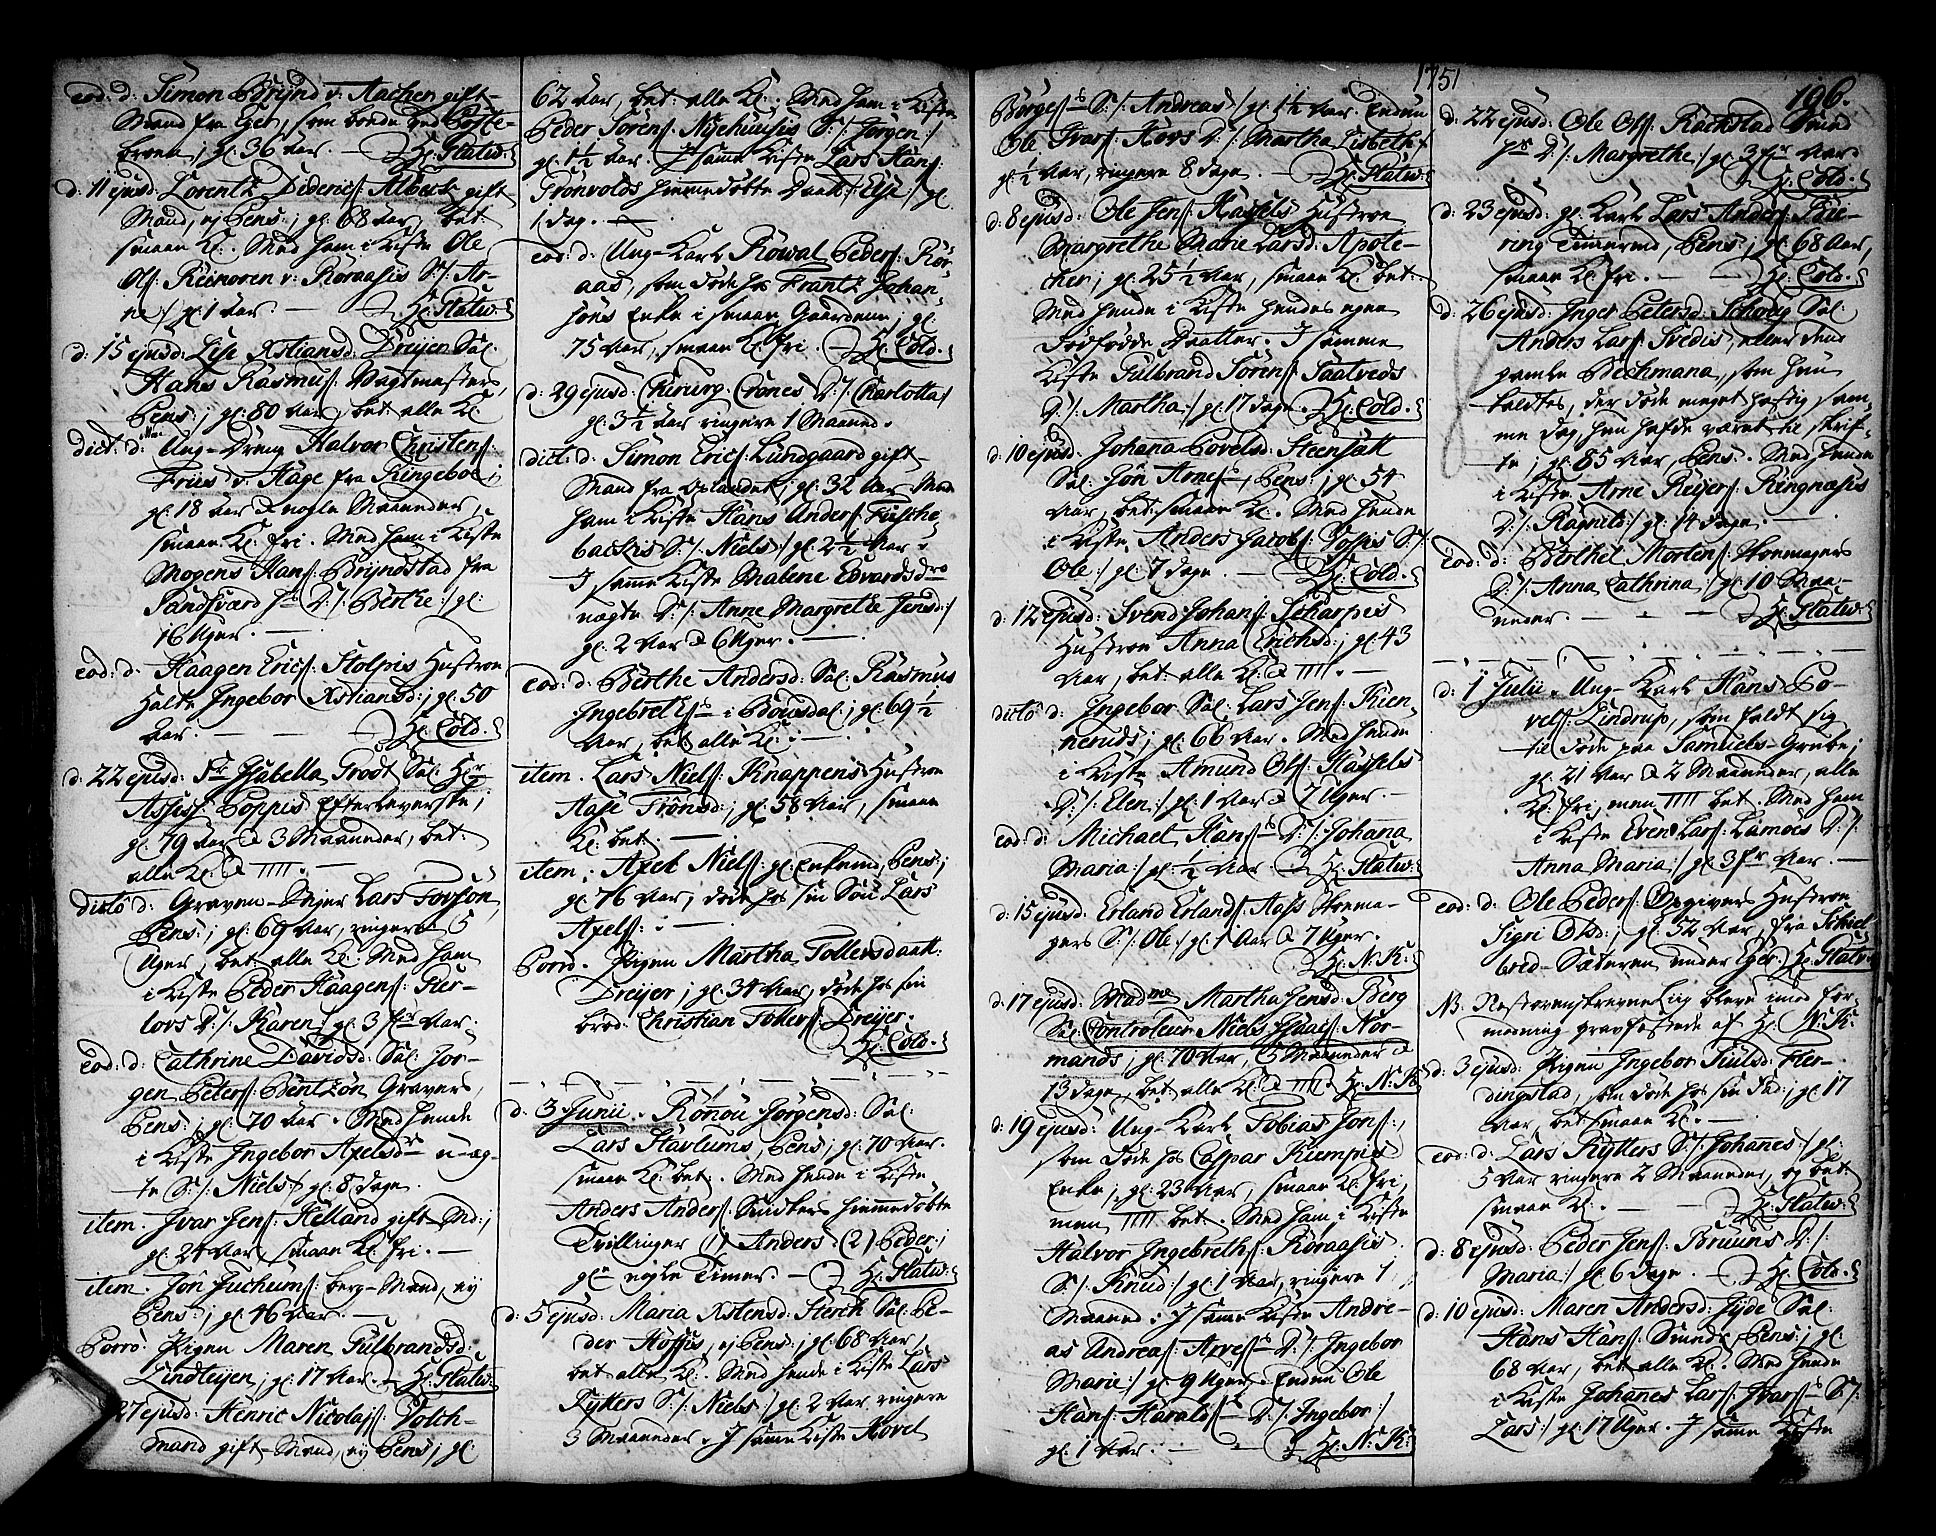 eod: d: Simon Brynd v. Aachen gift-
Mand fra Eger, som boede ved Cocte-
broen; gl: 36 Aar. — Hr: Statw:
d: 11 ejusd: Lorentz Dideric∫: Albert gift
Mand, ej Pens:; gl: 68 Aar, bet:
smaae Kl:. Med ham i Kiste Ole
Ols∫: Reenoren v: Koraasis S:/: Ar-
ne:/ gl: 1 Aar. — Hr: Statw:
d: 15 ejusd: Lise Xstiansd: Dreijer Sal:
Hans Rasmus∫: Vagtmesters,
Pens:; gl: 80 Aar, bet: alle Kl:
dict: d: Ung-Dreng Halvor Christens∫:
Friis v. Hage fra Ringeboe;
gl: 18 Aar & nogle Maaneder,
smaae Kl: fri. Med ham i Kiste
Mogens Hans∫: Bryndstad fra
Sandsværd hs D:/: Berthe:/ gl:
16 Uger. —
eod: d: Haagen Erics∫: Stolpis Hustroe
Halte Ingebor Xstiansd:; gl: 50
Aar. — Hr: Cold:
d: 22 ejusd: Fr Isabella Trodt Sal: Hr
Assess: Poppis Efterleverske;
gl: 79 Aar & 3 Maaneder, bet:
alle Kl: & IIII. —
dicto d: Graven-Stijer Lars Tovson,
Pens:; gl: 69 Aar, ringere 5
Uger, bet: alle Kl: Med ham
i Kiste Peder Haagens∫: Pier-
lors D:/: Karen:/ gl: 3 fr Aar.
eod: d: Cathrine Davidsd: Sal: Jør-
gen Peters∫: Bentzøn Gravers,
Pens:; gl: 70 Aar. Med hende
i Kiste Ingebor Axelsdr u-æg-
te S:/: Niels:/ gl: 8 dage.
item. Ivar Jens∫: Helland gift-Md:;
gl: 24 Aar, smaae Kl: fri. —
item. Jon Juchums∫: berg-Mand, ej
Pens:; gl: 46 Aar. —
Porro. Pigen Maren Gulbrandsd:
Lindteijen; gl: 17 Aar. Hr: Statw:
27 ejusd: Henric Nicolajs∫: Volch-
mand gift-Mand, ej Pens:; gl:
62 Aar, bet: alle Kl: Med ham i Kiste
Peder Sørens∫: Nijehuusis S:/: Jørgen:/
gl: 1½ Aar. I samme Kiste Lars Hans∫:
Grønvolds hiemmedøbte Daat:/ Else:/ gl:
1 dag. —
eod: d: Ung-Karl Rowal Peders∫: Rør-
aas, som døde hos Frantz Johan-
søns Enke i smaae Gaardene; gl:
75 Aar, smaae Kl: fri. Hr: Cold:
d: 29 ejusd: Chirurg: Crones D:/: Charlotta:/
gl: 3½ Aar ringere 1 Maaned.
dict: d: Simon Erics∫: Lundgaard gift-
Mand fra Oplandet; gl: 32 Aar. Med
ham i Kiste Hans Anders∫: Fische
backis S:/: Niels:/ gl: 2½ Aar.
I samme Kiste Malene Edvardsdrs
uægte D:/: Anne Margrethe Jensd:/
gl: 2 Aar & 6 Uger. —
eod: d: Berthe Andersd: Sal: Rasmus
Ingebretss i Bowsdal; gl: 69½
Aar, bet: alle Kl: —
item. Lars Niels∫: Knappens Hustroe
Aase Trønsd:; gl: 58 Aar, smaae
Kl: bet: —
item. Axel Niels∫: gl: Enkemd, Pens:;
gl: 76 Aar, døde hos sin Søn Lars
Axels∫: —
Porro. Pigen Martha Tollersdaatt:
Dreijer; gl: 34 Aar, døde hos sin
brod: Christian Tollers∫: Dreijer.
Hr: Cold:
d: 3 Junii. Rønou Jørgensd: Sal:
Lars Stavlums, Pens:; gl: 70 Aar.
smaae Kl: bet:. Med hende i Kiste
Anders Anders∫: Snidkers hiemmedøbte
Tvillinger (1) Anders. (2) Peder;
gl: nogle Timer. — Hr: Statw:
d: 5 ejusd: Maria Xstensd: Sterch Sal: Pe-
der Hoffis, ej Pens:; gl: 68 Aar,
bet: alle Kl:. Med hende i Kiste Lars
Rytters S:/: Niels:/ gl: 2 Aar ringere
3 Maaneder. I samme Kiste Hovel
1751
Børgess S:/: Andreas:/ gl: 1½ Aar. Endnu
Ole Ivars∫: Hovs D:/: Martha Lisbeth:/
gl: ½ Aar, ringere 8 dage. — Hr: Statw:
d: 8 ejusd: Ole Jens∫: Hassels Hustroe
Margrethe Marie Larsd: Apote-
cher; gl: 25½ Aar, smaae Kl: bet:
Med hende i Kiste hendes egen
dødfødde Daatter. I samme
Kiste Gulbrand Sørens∫: Saatveds
D:/: Martha:/ gl: 17 dage. Hr: Cold:
d: 10 ejusd: Johana Povelsd: Steensæt
Sal: Jon Arness, Pens:; gl: 54
Aar, bet: smaae Kl:. Med hende
i Kiste Anders Jacobs∫: Dopis S:/
Ole:/ gl: 7 dage. — Hr: Cold:
d: 12 ejusd: Svend Johans∫: Scharpis
Hustroe Anna Erichsd:; gl: 43
Aar, bet: alle Kl: & IIII. —
dicto d: Ingebor Sal: Lars Jens∫: Kien-
neruds; gl: 66 Aar. Med hende
i Kiste Amund Ols∫: Hassels
D:/: Elen:/ gl: 1 Aar & 7 Uger. —
eod: d: Michael Hanss D:/: Johana
Maria:/ gl: ½ Aar. — Hr: Statw:
d: 15 ejusd: Erland Erlands∫: Aass Skoma-
gers S:/: Ole:/ gl: 1 Aar & 7 Uger.
Hr: N: K:
d: 17 ejusd: Madme Martha Jensd: Berg
Sal: Controleur Niels Isaacs∫: Nor-
mands; gl: 70 Aar, 5 Maaneder &
13 dage, bet: alle Kl: & IIII. Hr: N: K:
d: 19 ejusd: Ung-Karl Tobias Jons∫:,
som døde hos Caspar Kiempis
Enke; gl: 23 Aar, smaae Kl: fri,
men IIII bet:. Med ham i Kiste
Halvor Ingebreths∫: Koraasis
S:/: Knud:/ gl: 1 Aar, ringere 1
Maaned. I samme Kiste Andre-
as Andreas∫: Arvess D:/: Ingebor
Marie:/ gl: 9 Uger. Endnu Ole
Hans∫: Haralds∫s D:/: Ingebor:/
gl: 1 Aar. — Hr: N: K:
196.
d: 22 ejusd: Ole Ols∫: Rackstad Smed
hs D:/: Margrethe:/ gl: 3 fr Aar.
Hr: Cold:
d: 23 ejusd: gl: Karl Lars Anders∫: Bie-
ring Timmermd, Pens:; gl: 68 Aar,
smaae Kl: fri. — Hr: Cold:
d: 26 ejusd: Inger Petersd: Schoug Sal:
Anders Lars∫: Svedis, eller dend
gamle Bechmana, som hun
kaldtes, der døde meget hastig sam-
me dag, hun hafde været til skrif-
te; gl: 85 Aar, Pens:. Med hende
i Kiste Arne Reijers∫: Ringnæsis
D:/: Ragnild:/ gl: 14 dage. —
eod: d: Berthel Mortens∫: Skomagers
D:/: Anna Cathrina:/ gl: 10 Maa-
neder. — Hr: Statw:
d: 1 Julii. Ung-Karl Hans Po-
vels∫: Lindrup, som faldt sig
til døde paa Samuels-Grube;
gl: 21 Aar & 2 Maaneder, alle
Kl: fri, men IIII bet:. Med ham
i Kiste Even Lars∫: Lamoes D:/:
Anna Maria:/ gl: 3 fr Aar. —
eod: d: Ole Peders∫: Opgivers Hustroe
Sigri Olsd:; gl: 52 Aar, fra Schiel-
bred-Sæteren under Eger. Hr: Statw:
NB. Næstforeskrevne Liig bleve imod for-
modning gravfæstede af Hr: N: K:
d: 3 ejusd: Pigen Ingebor Juulsd: Fler-
dingstad, som døde hos sin Fad:; gl: 17
Aar, bet: smaae Kl: —
eod: d: Lars Rytters S:/: Johanes:/ gl:
5 Aar ringere 2 Maaneder, og bet:
smaae Kl:. — Hr: Statw:
d: 8 ejusd: Peder Jens∫: Bruuns D:/:
Maria:/ gl: 6 dage. — Hr: Cold:
d: 10 ejusd: Maren Andersd: Jyde Sal:
Hans Hans∫: Smeds Pens:; gl:
68 Aar, bet: alle Kl:. Med hende
i Kiste Johanes Lars∫: Ivars∫s S:/:
Lars:/ gl: 17 Uger. I samme Kiste